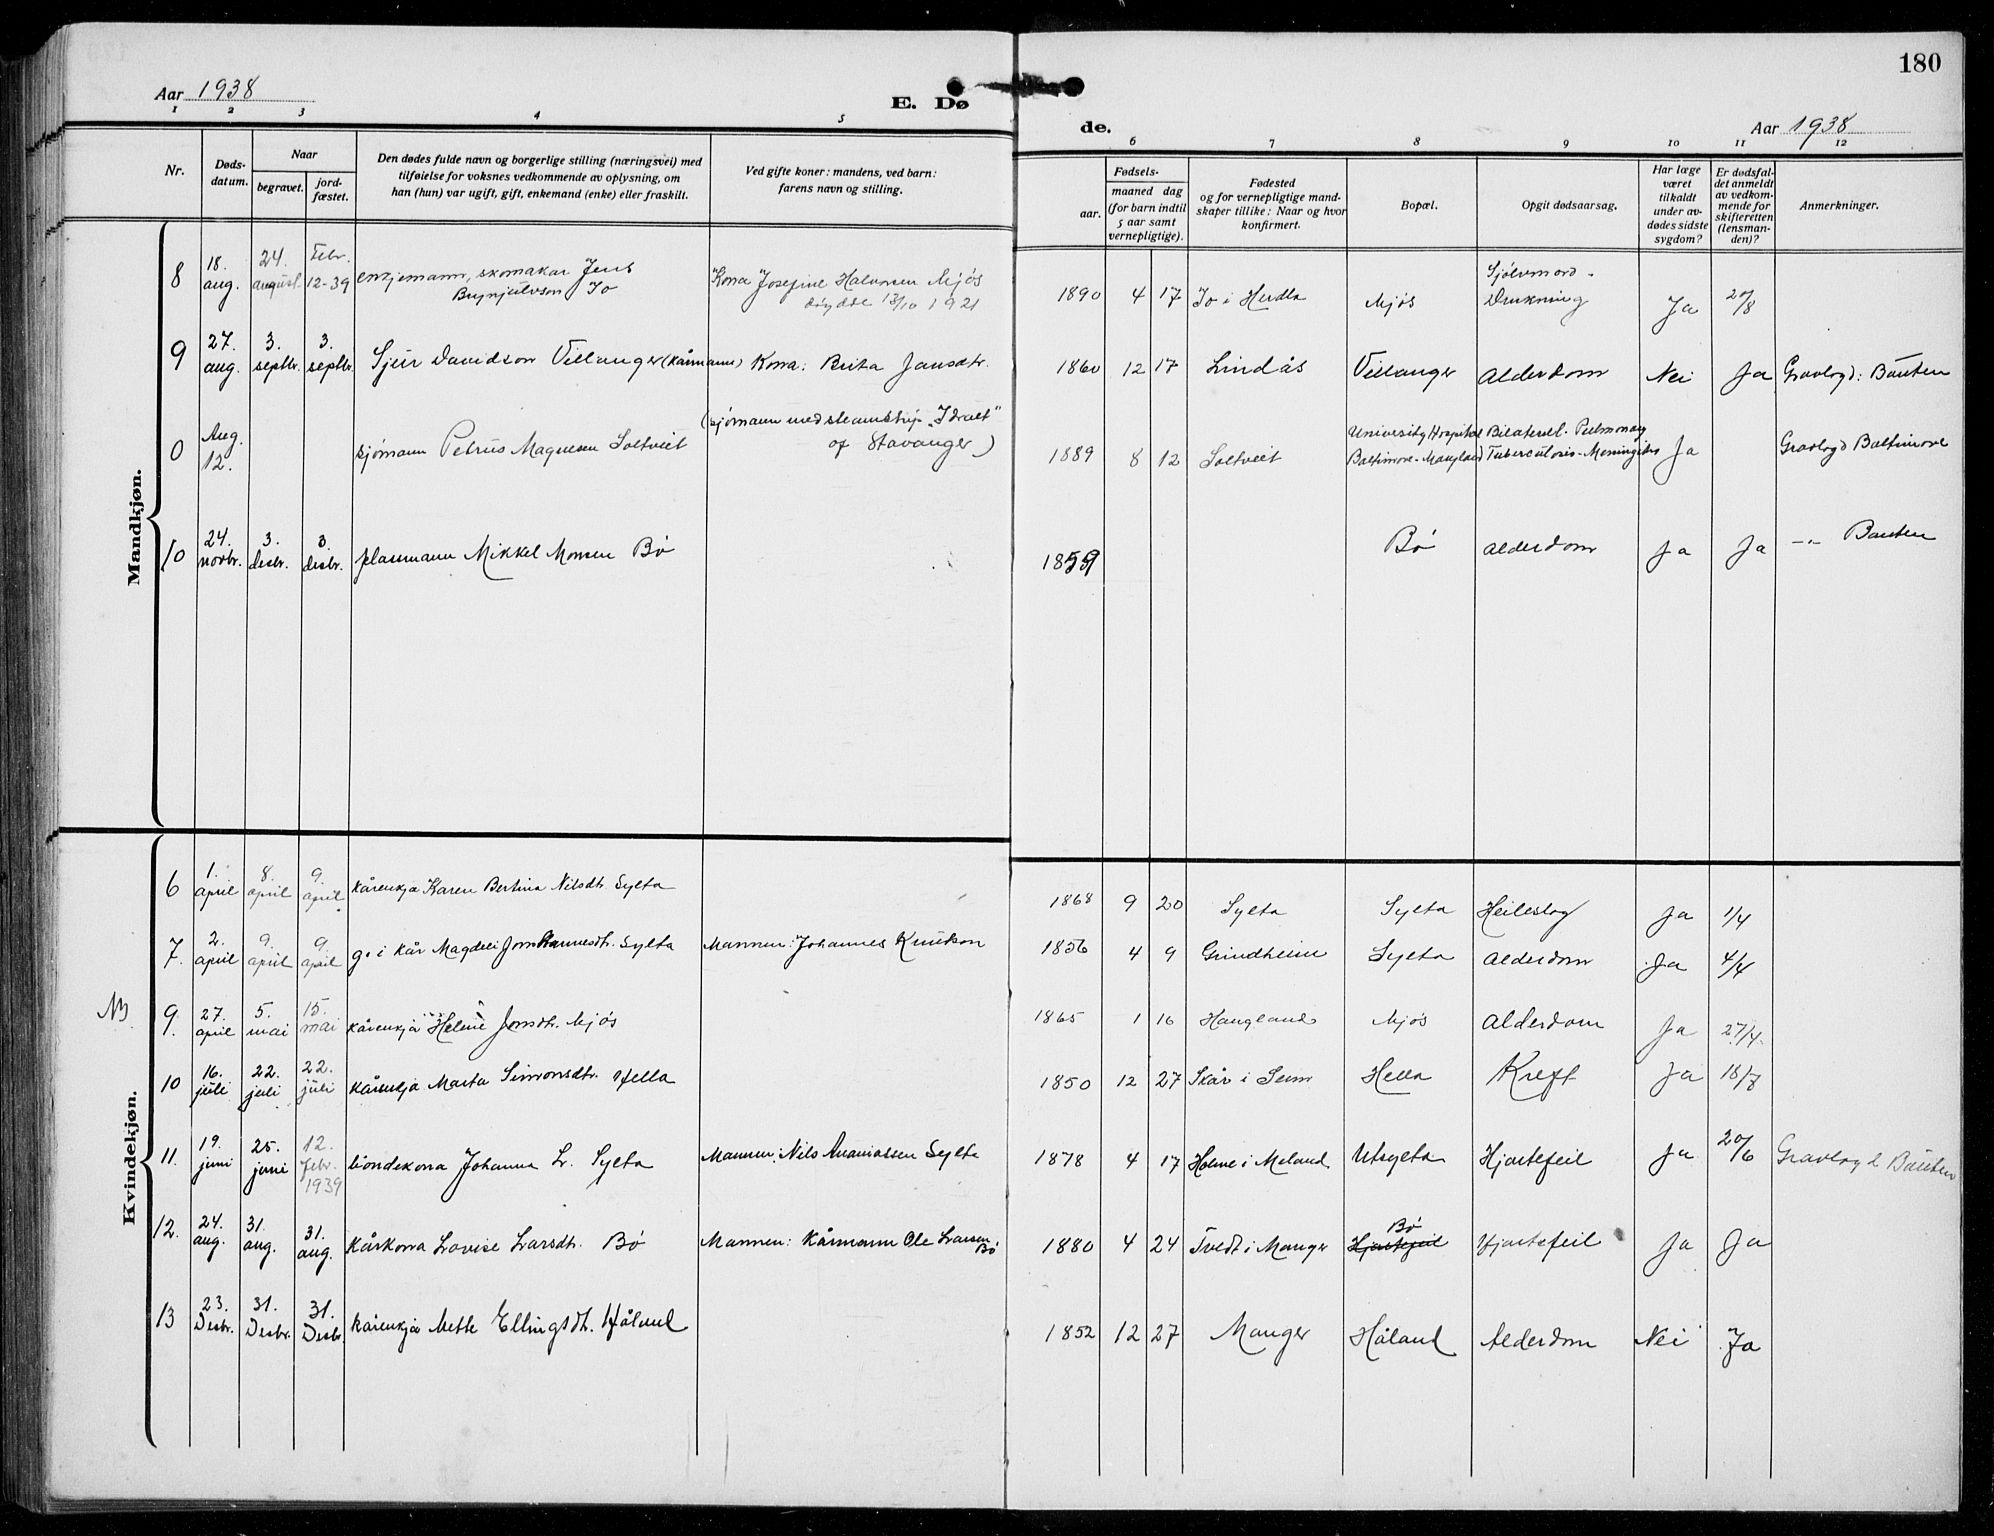 180
Aar 1938
E. Dø
de.
Aar 1938
1 2 3 4 5 6 7 8 9 10 11 12
Nr.
Døds-
datum.
Naar
begravet.
jord-
fæstet.
Den dødes fulde navn og borgerlige stilling (næringsvei) med
tilføielse for voksnes vedkommende av oplysning, om
han (hun) var ugift, gift, enkemand (enke) eller fraskilt.
Ved gifte koner: mandens, ved barn:
farens navn og stilling.
Fødsels-
aar.
maaned dag
(for barn indtil
5 aar samt
vernepligtige).
Fødested
og for vernepligtige mand-
skaper tillike: Naar og hvor
konfirmert.
Bopæl.
Opgit dødsaarsag.
Har læge
været
tilkaldt
under av-
dødes sidste
sygdom?
Er dødsfal-
det anmeldt
av vedkom-
mende for
skifteretten
(lensman-
den)?
Anmerkninger.
Mandkjøn.
8 18. aug. 24. august Febr. 12-39 enkjemann, skomakar Jens
Brynjulvson Io
Kona Josefine Halvorsen Mjøs
døydde 13/10 1921
1890 4 17 Io i Herdla Mjøs Sjølvmord -
Drukning Ja 20/8
9 27. aug. 3. septbr. 3. septbr. Sjur Davidson Villanger (kårmann) Kona: Brita Jansdtr. 1860 12 17 Lindås Villanger Alderdom Nei Ja Gravlagd: Bauten
0 Aug. 12. sjømann Petrus Magnesen Soltveit (sjømann med steamship "Idraet"
of Stavanger)
1889 8 12 Soltveit University Hospital
Baltimore-Maryland
Bilateral. Pulmonary
Tuberculosis-Meningitis Ja Gravlagd Baltimore
10 24. novbr. 3. desbr. 3. desbr. plassmann Mikkel Monsen Bø 1859 Bø alderdom Ja Ja -"- Bauten
Kvindekjøn.
6 1. april 8. april 9. april kårenkja Karen Bertina Nilsdtr. Sylta 1868 9 20 Sylta Sylta Heileslag Ja 1/4
7. 2. april 9. april 9. april g. i kår Magdeli Johannesdtr. Sylta Mannen: Johannes Knutson 1856 4 9 Grindheim Sylta Alderdom Ja 4/4
NB. 9. 27. april 5. mai 15. mai kårenkja Helene Jonsdtr. Mjøs 1865 1 16 Haugland Mjøs Alderdom Ja 27/4.
10 16. juli 22. juli 22. juli kårenkja Marta Simonsdtr. Hella 1850 12 27 Skår i Seim Hella Kreft Ja 18/7
11. 19. juni 25. juni 12. febr. 1939 bondekona Johanna L. Sylta Mannen: Nils Ananiassen Sylta 1878 4 17 Holme i Meland Utsylta Hjartefeil Ja 20/6 Gravlagd Bauten
12. 24. aug. 31. aug. 31. aug. Kårkona Lovise Larsdtr. Bø Mannen: Kårmann Ole Larsen
Bø
1880 4 24 Tvedt i Manger Bø
Hjartefeil Hjartefeil Ja Ja
13 23. Desbr. 31. Desbr. 31. Desbr. kårenkja Mette Ellingsdtr. Håland 1852 12 27 Manger Håland Alderdom Nei Ja